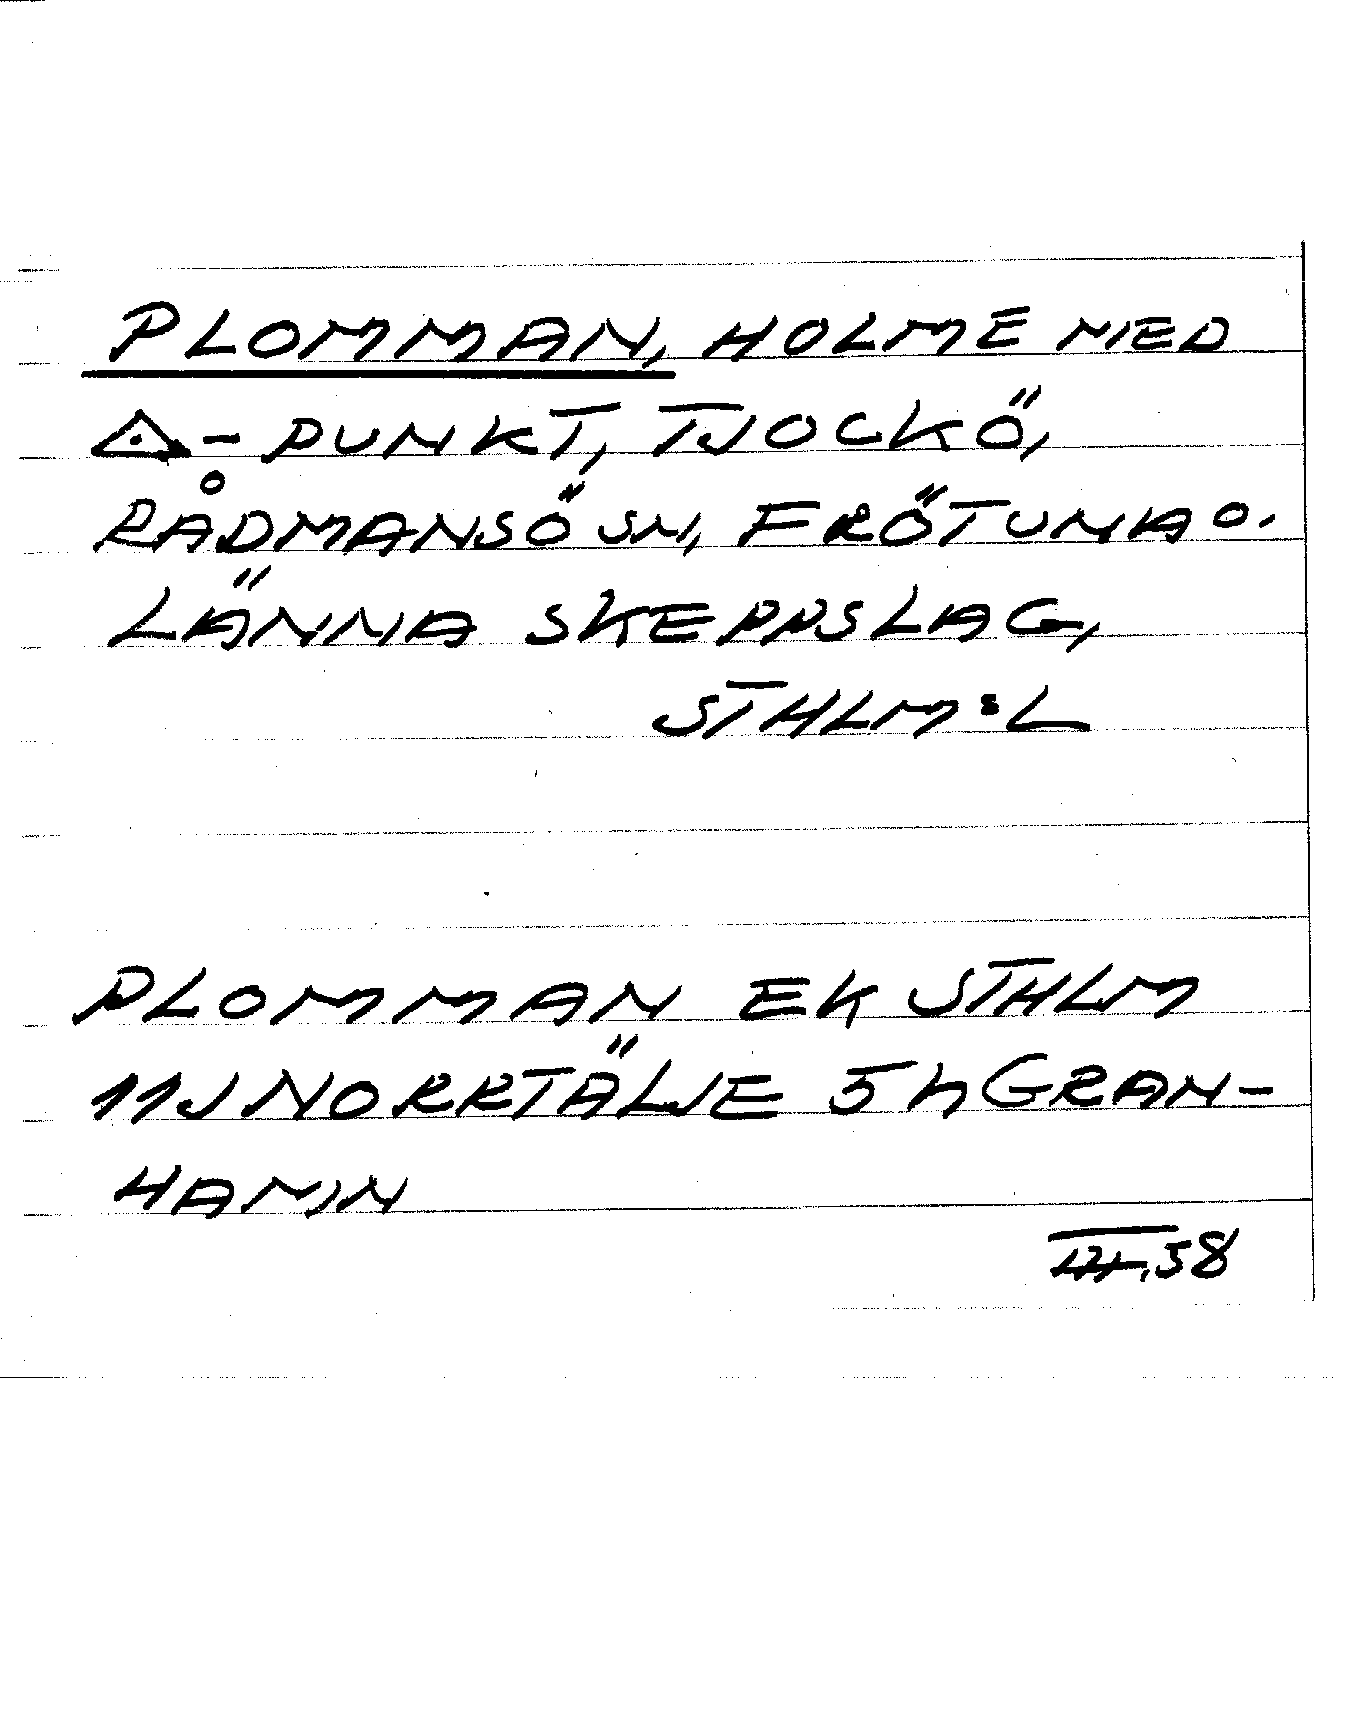 PLOMMAN, HOLME MED
△-PUNKT, TJOCKÖ,
RÅDMANSÖ SN, FRÖTUNA O.
LÄNNA SKEPPSLAG,
STHLM:L
PLOMMAN EK STHLM
11J NORRTÄLJE 5h GRAN-
HAMN
58